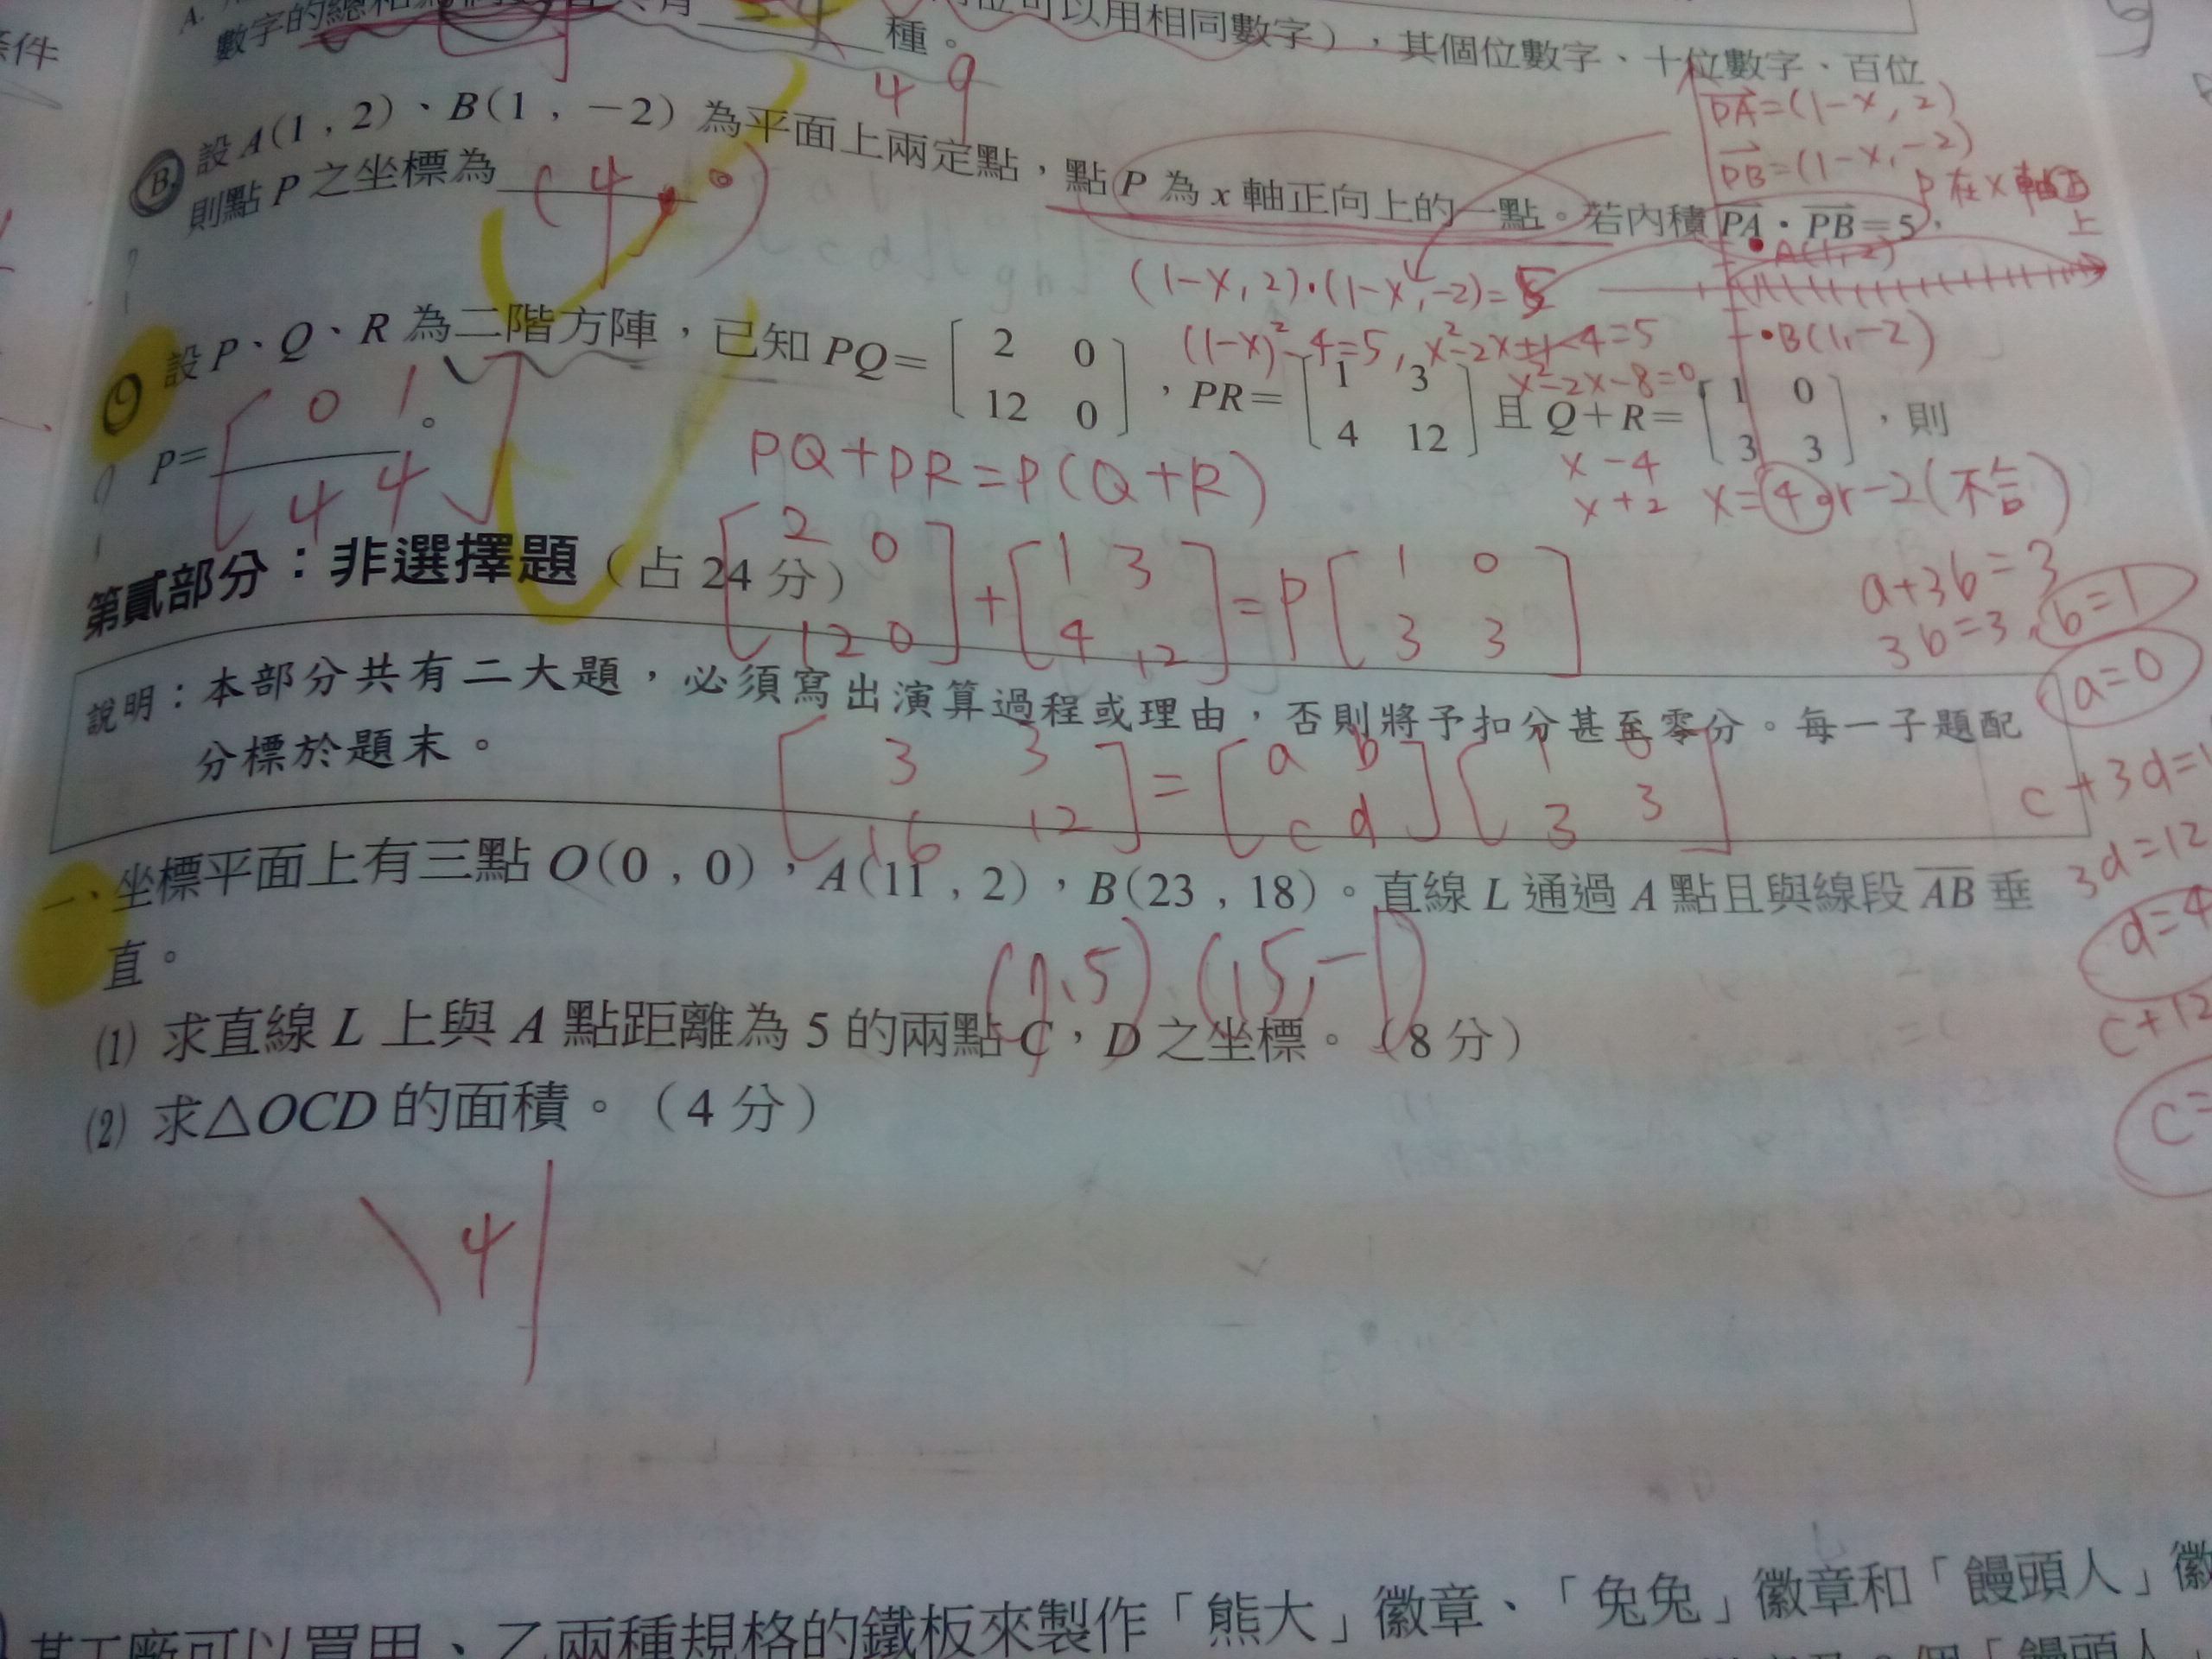 條件
A.
數字的總和
種。
可以用相同數字），其個位數字、十位數字、百位
49
B.
設 A(1 , 2)、B(1 , −2) 為平面上兩定點，點 P 為 x 軸正向上的一點。若內積 PA · PB = 5，
則點 P 之坐標為 (4, 0)
PA=(1-x, 2)
PB=(1-x, -2)
P在x軸正
上
A(1,2)
(1-x, 2)·(1-x, -2)=5
(1-x)²-4=5, x²-2x+1-4=5
B(1,-2)
x²-2x-8=0
x -4
x +2 x=4 or -2(不合)
設 P、Q、R 為二階方陣，已知 PQ= [2 0 12 0]，PR= [1 3 4 12] 且 Q+R= [1 0 3 3]，則
P= [0 1 4 4]。
PQ+PR=P(Q+R)
[2 0 12 0]+[1 3 4 12]=P[1 0 3 3]
a+3b=3
3b=3, b=1
a=0
第貳部分：非選擇題（占 24 分）
說明：本部分共有二大題，必須寫出演算過程或理由，否則將予扣分甚至零分。每一子題配
分標於題末。
[3 3 16 12]=[a b c d][1 0 3 3]
c+3d=1
3d=12
d=4
c+12
c=
一、坐標平面上有三點 O(0 , 0)，A(11 , 2)，B(23 , 18)。直線 L 通過 A 點且與線段 AB 垂
直。
(7,5), (15,-1)
(1) 求直線 L 上與 A 點距離為 5 的兩點 C，D 之坐標。（8 分）
(2) 求△OCD 的面積。（4 分）
\4|
某工廠可以買甲、乙兩種規格的鐵板來製作「熊大」徽章、「兔兔」徽章和「饅頭人」徽
個「饅頭人」